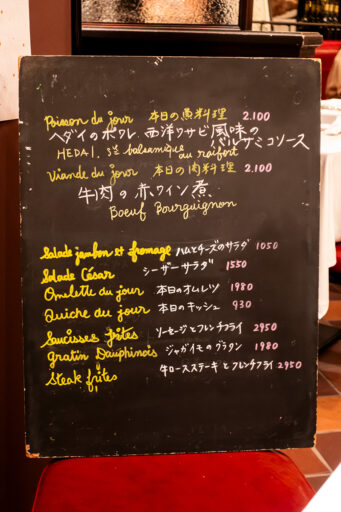 Poisson du jour 本日の魚料理 2.100
ヘダイのポワレ、西洋ワサビ風味の
バルサミコソース
HEDAI, sce balsamique au raifort
Viande du jour 本日の肉料理 2.100
牛肉の赤ワイン煮
Boeuf Bourguignon
Salade jambon et fromage ハムとチーズのサラダ 1050
Salade César シーザーサラダ 1550
Omelette du jour 本日のオムレツ 1980
Quiche du jour 本日のキッシュ 930
Saucisses frites ソーセージとフレンチフライ 2950
gratin Dauphinois ジャガイモのグラタン 1980
Steak frites 牛ロースステーキとフレンチフライ 2950